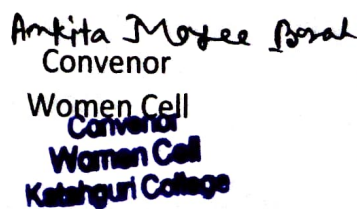 Ankita Moyee Borah
Convenor
Women Cell
Convenor
Women Cell
Katahguri College